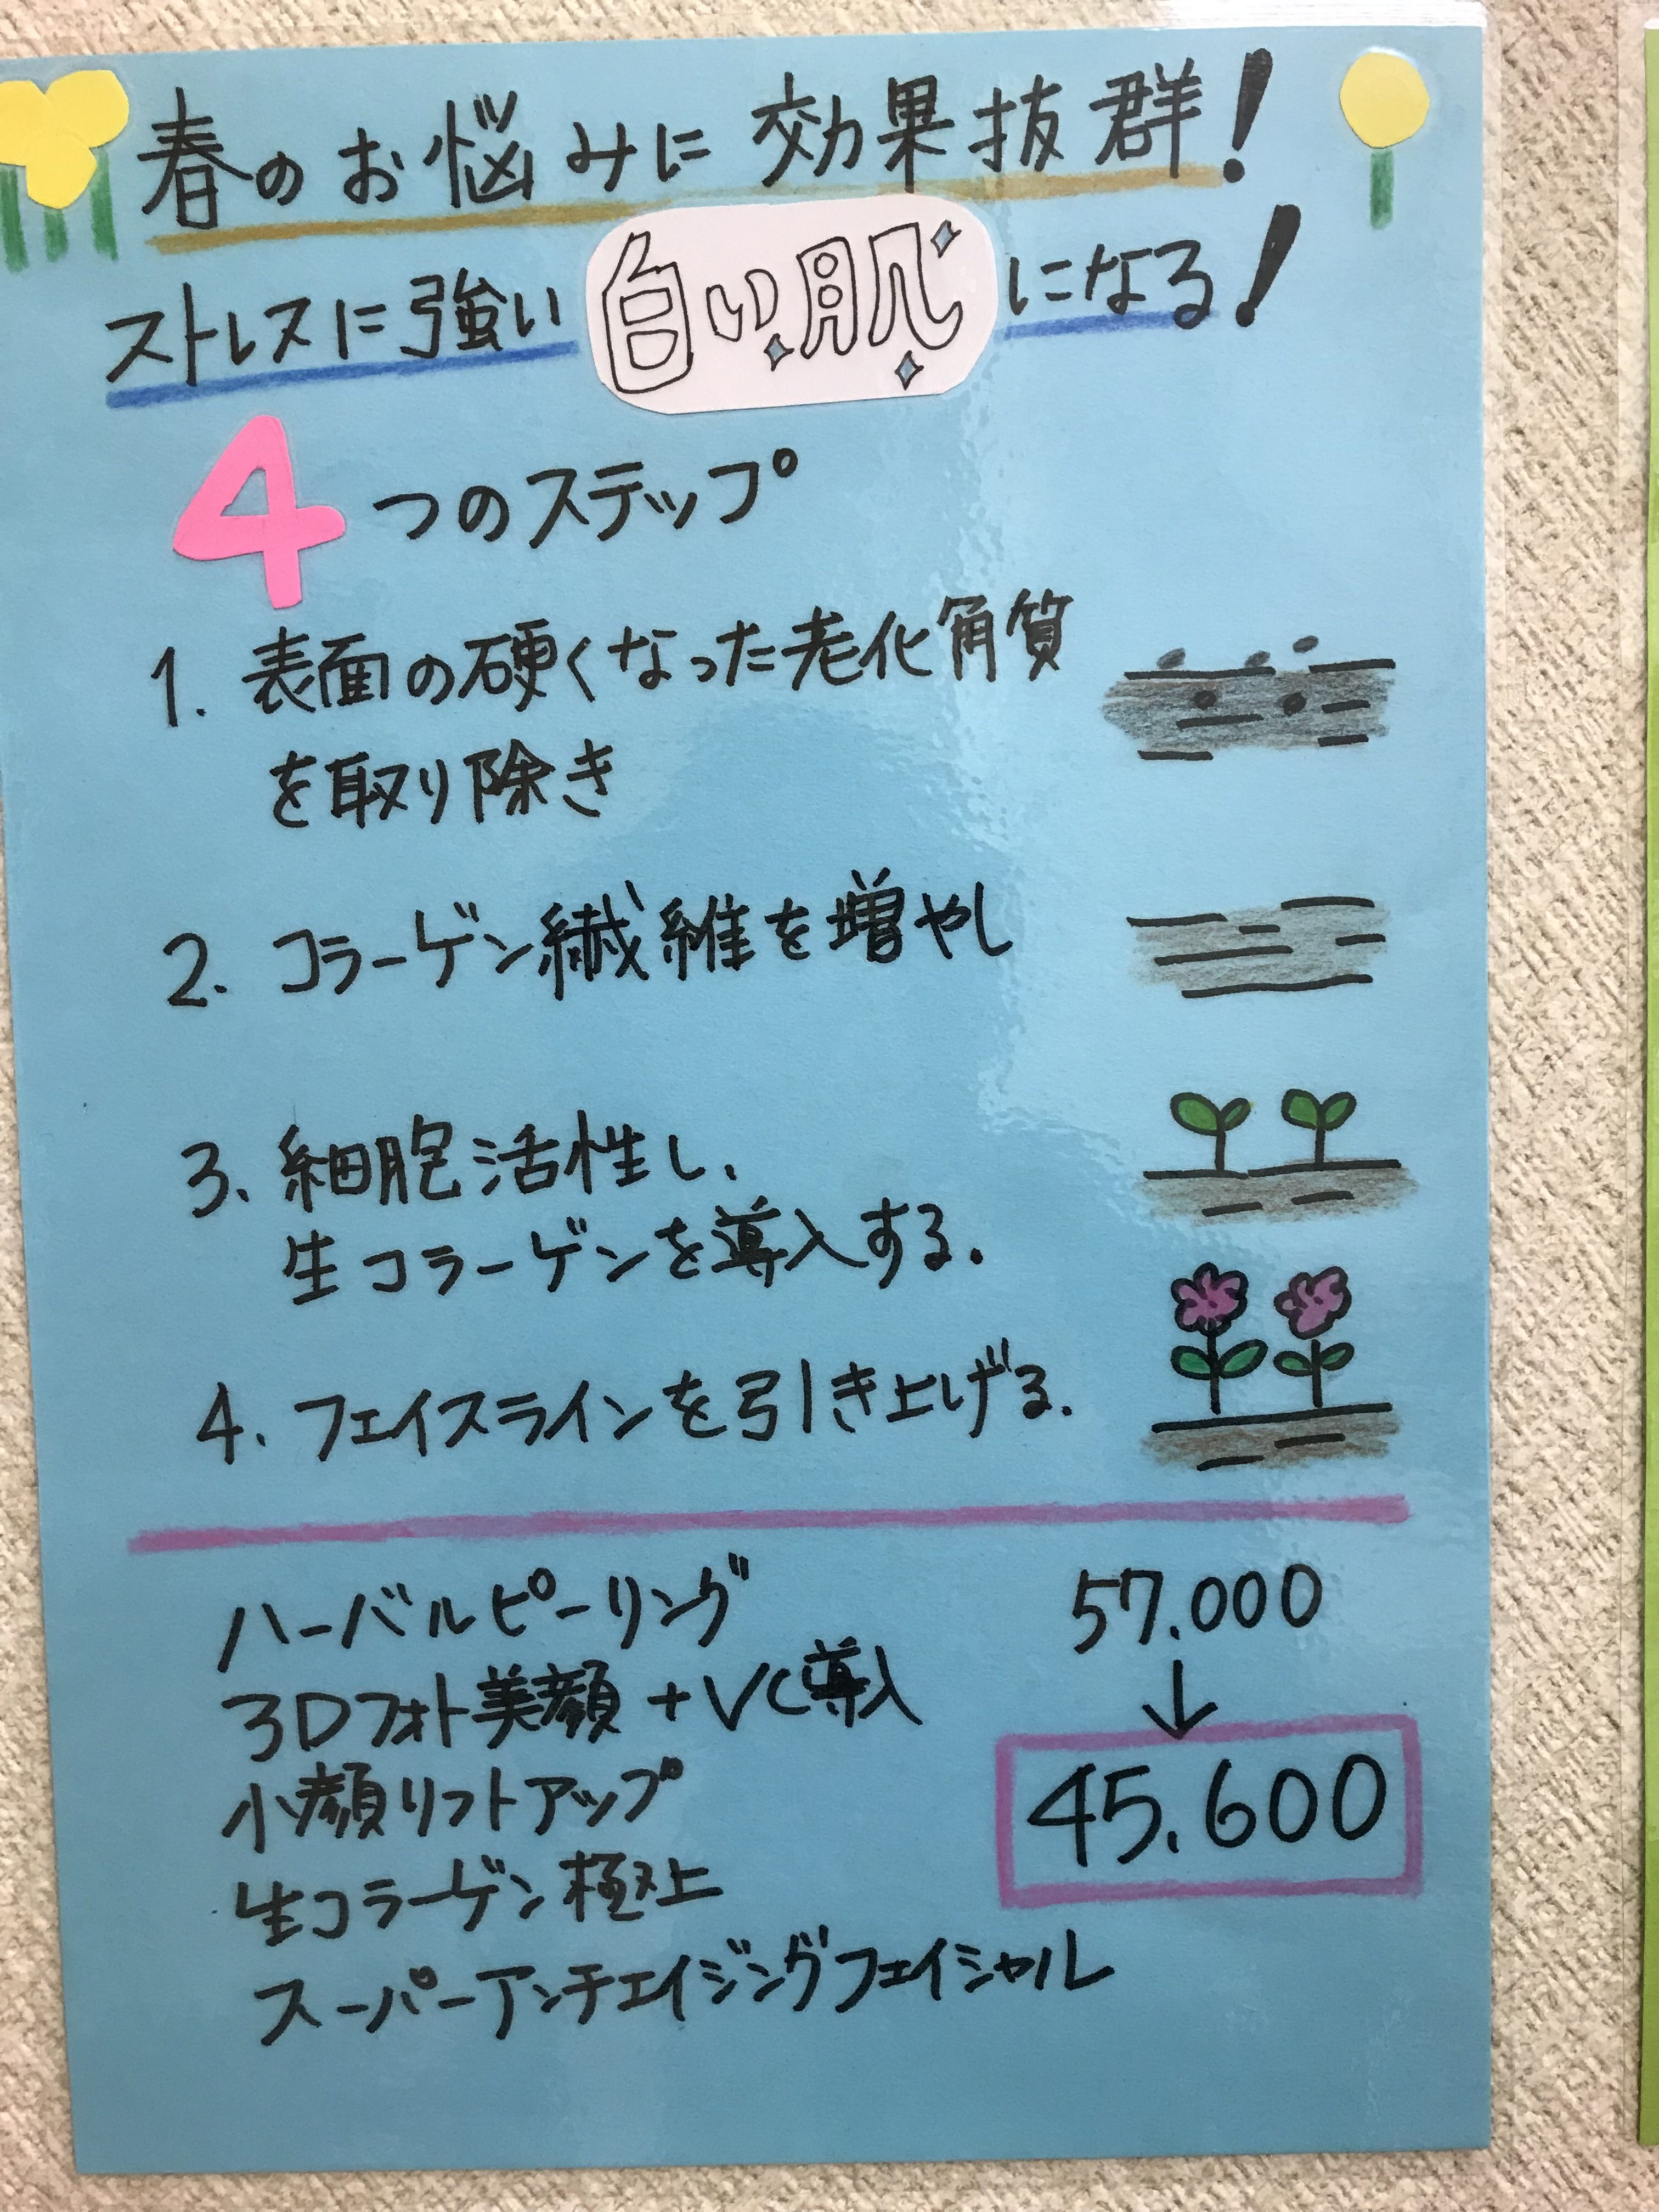 春のお悩みに効果抜群！
ストレスに強い白い肌になる！
4つのステップ
1. 表面の硬くなった老化角質
を取り除き
2. コラーゲン繊維を増やし
3. 細胞活性し、
生コラーゲンを導入する.
4. フェイスラインを引き上げる.
ハーバルピーリング
57.000
3Dフォト美顔+VC導入
↓
小顔リフトアップ
45.600
生コラーゲン極上
スーパーアンチエイジングフェイシャル